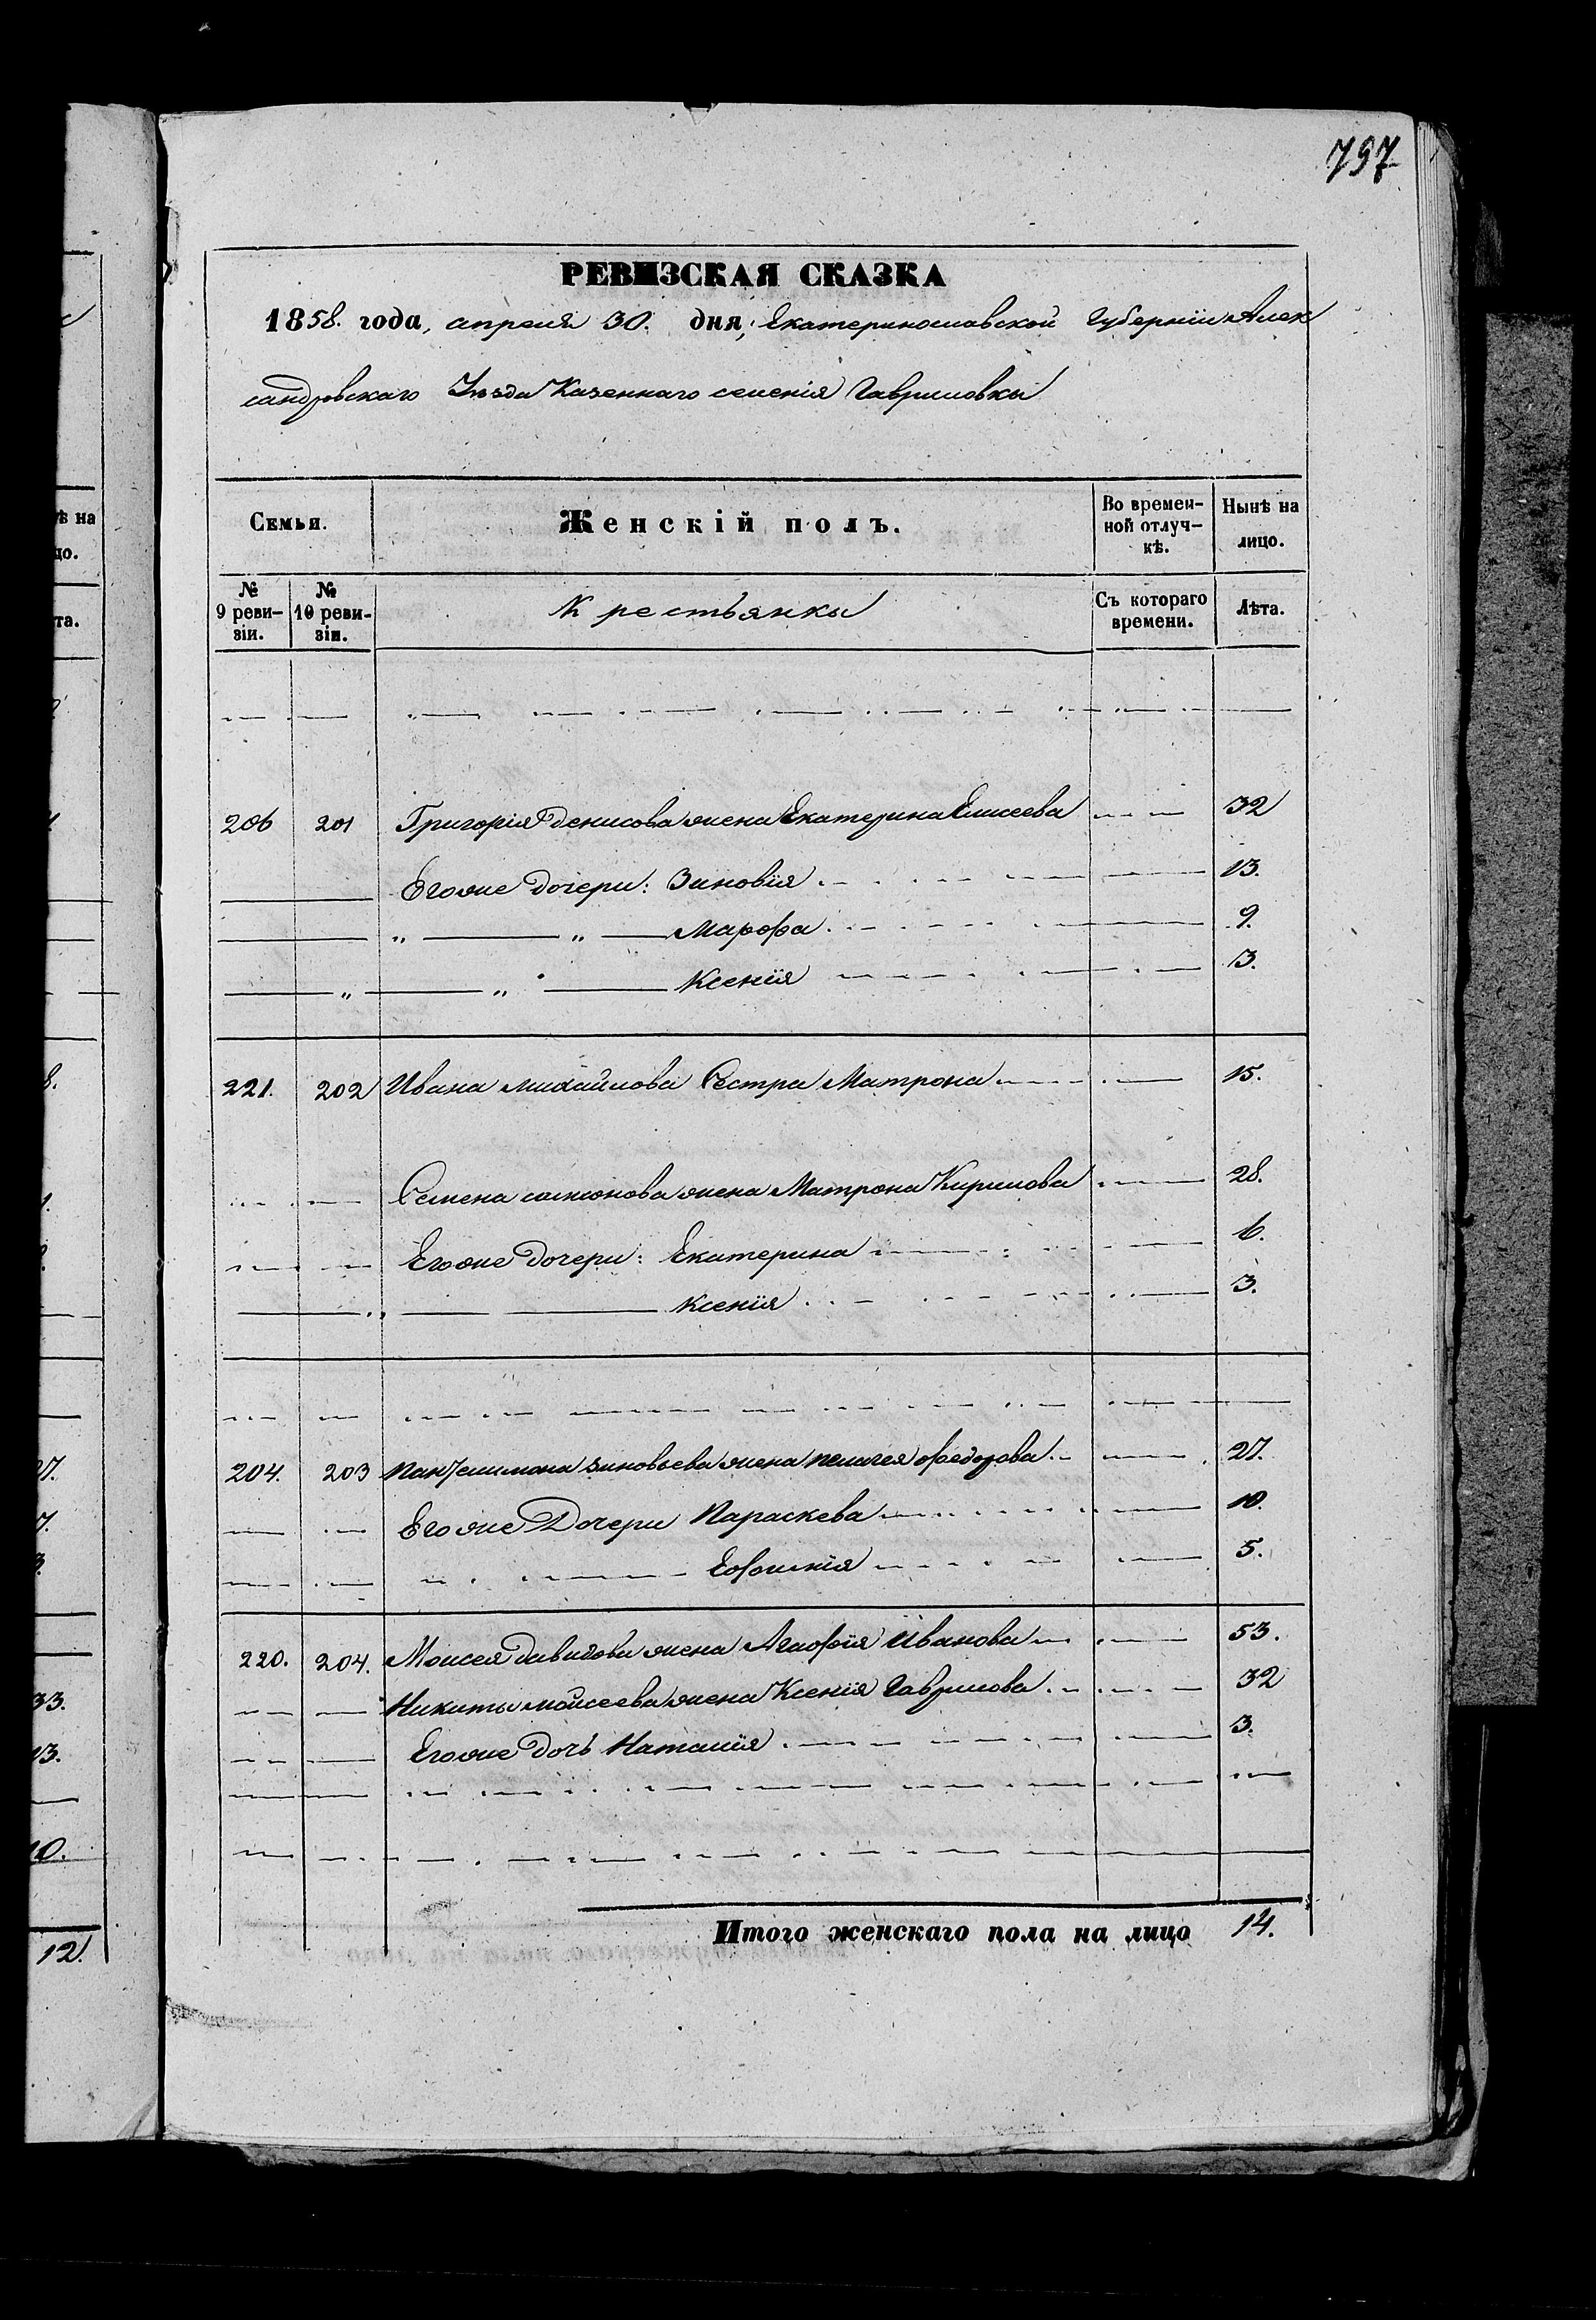 797
РЕВИЗСКАЯ СКАЗКА
1858. года, апреля 30. дня, Екатеринославской Губерніи Алек
сандровскаго Уѣзда Казеннаго селенія Гавриловки
Семьи. Женскій полъ. Во времен- Нынѣ на
ной отлуч- лицо.
кѣ.
№ № Крестьянки Съ котораго Лѣта.
9 реви- 10 реви- времени.
зіи. зіи.
206 201 Григорія Денисова жена Екатерина Елисеева 32
Егоже дочери: Зиновія 13.
„ „ Марфа 9.
„ „ Ксенія 3.
221. 202 Ивана михайлова Сестра Матрона 15.
Семена жена Матрона Кирилова 28.
Егоже Дочери: Екатерина 6.
„ Ксенія 3.
204. 203 Пантелимона зиновьева жена пелагея федорова 27.
Егоже Дочери Параскева 10.
Ефимія 5.
220. 204. Моисея давидова жена Агафія Иванова 53.
Никиты моисеева жена Ксенія Гаврилова 32
Егоже дочь Наталія 3.
Итого женскаго пола на лицо 14.
ѣ на
цо.
та.
8.
27.
7.
3.
33.
13.
10.
12.